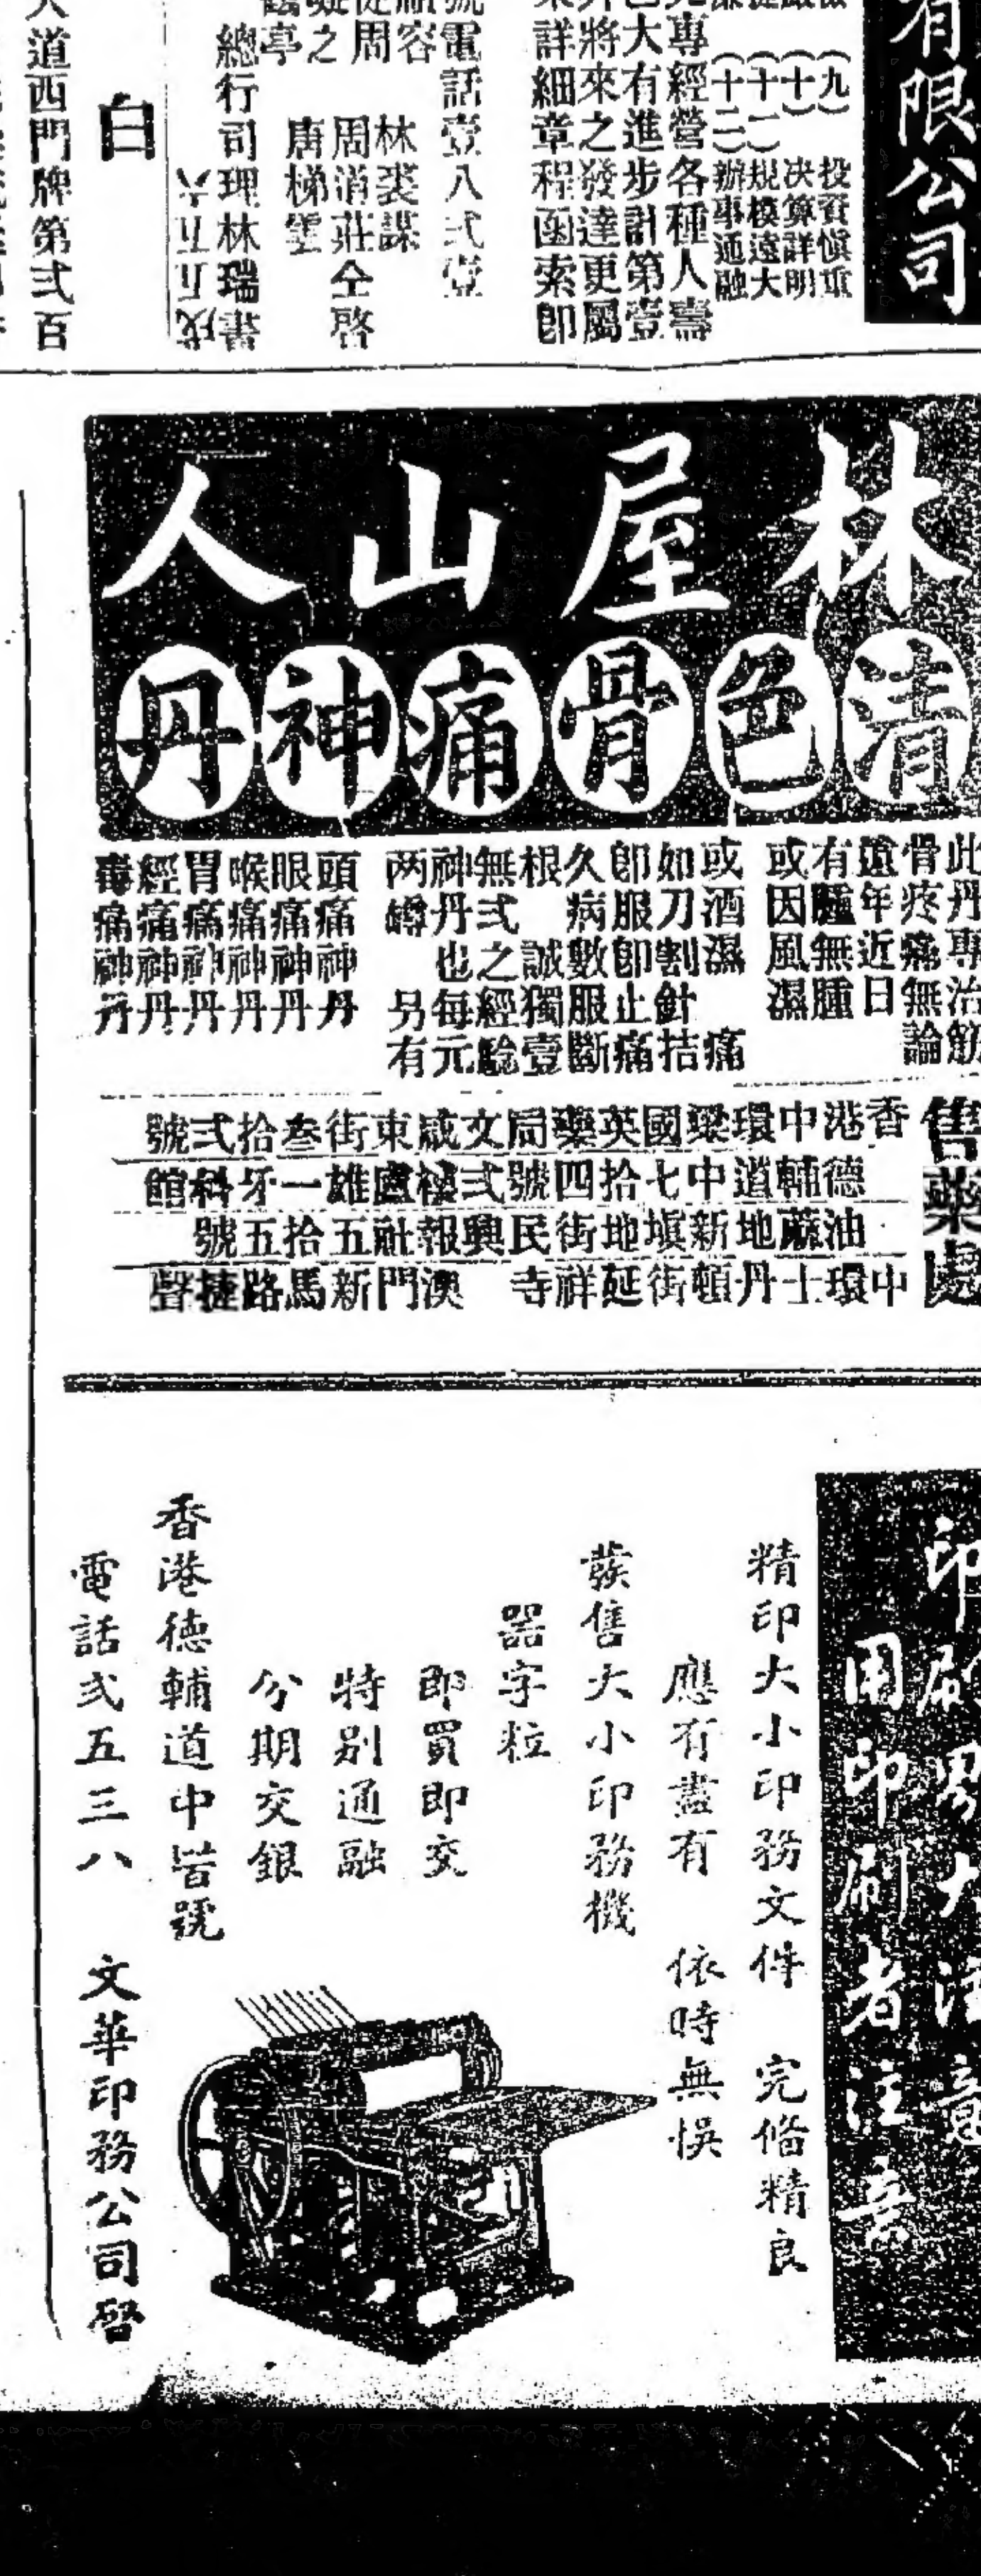 有限公司
投資慎重
决算詳明
規模遠大
辦事通融
(九)
(十)
(十一)
(十二)
專經營各種人壽
大有進步計第壹
將來之發達更屬
詳細章程函索即
號電話壹八弍壹
容
林裘謀
周
周消莊仝啓
之
亭
唐梯雲
總行司理林瑞
白
道西門牌第弍百
林屋山人
清色骨痛神丹
此丹專治筋
骨疼痛無論
遠年近日
有腫無腫
或因風濕
或酒濕 痛
如刀割針拮
即服即止痛
久病數服斷
根 誠獨壹
無弍之經驗
神丹也每元
两罇 另有
頭痛神丹
眼痛神丹
喉痛神丹
胃痛神丹
經痛神丹
毒痛神丹
售藥處
香港中環梁國英藥局文咸東街叁拾弍號
德輔道中七拾四號弍樓盧雄一牙科館
油蔴地新塡地街民興報社五拾五號
中環士丹頓街延祥寺 澳門新馬路捷聲
印刷界大注意
用印刷者注意
精印大小印務文件 完俻精良
應有盡有 依時無悞
發售大小印務機
器字粒
即買即交
特別通融
分期交銀
香港德輔道中
電話弍五三八 文華印務公司啓